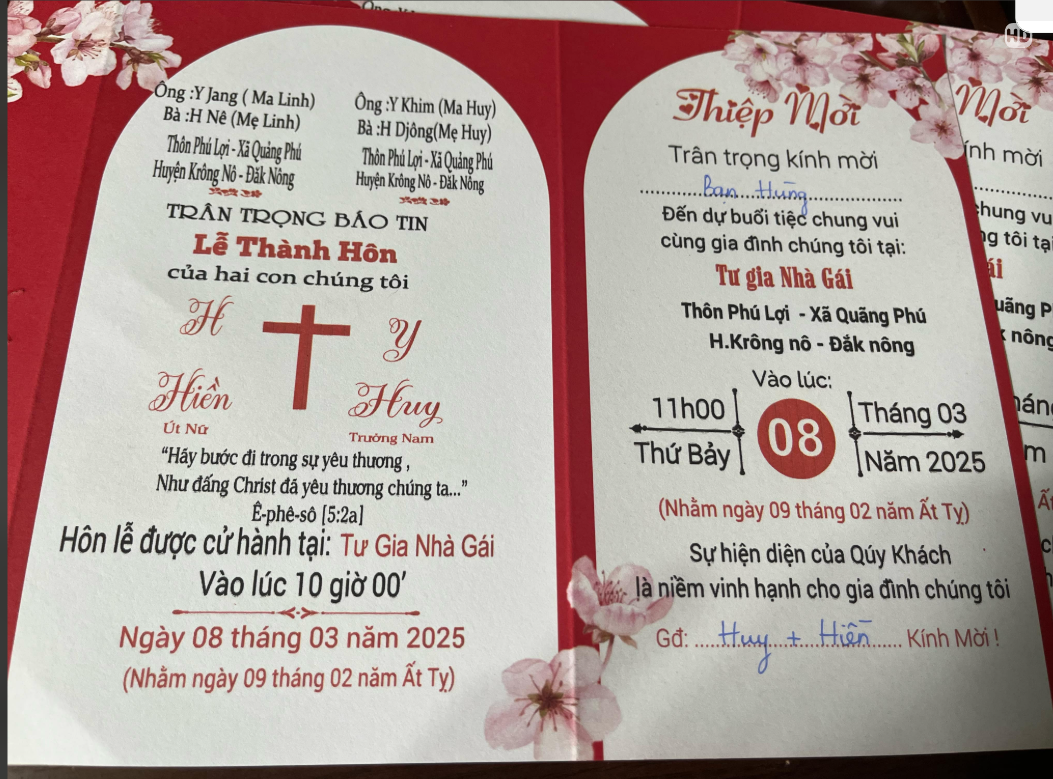 Ông :Y Jang ( Ma Linh)
Bà :H Nê (Mẹ Linh)
Thôn Phú Lợi - Xã Quảng Phú
Huyện Krông Nô - Đăk Nông
Ông :Y Khim (Ma Huy)
Bà :H Djông(Mẹ Huy)
Thôn Phú Lợi - Xã Quảng Phú
Huyện Krông Nô - Đăk Nông
TRÂN TRỌNG BÁO TIN
Lễ Thành Hôn
của hai con chúng tôi
H
Y
Hiền
Huy
Út Nữ
Trưởng Nam
“Háy bước đi trong sự yêu thương ,
Như đấng Christ đã yêu thương chúng ta...”
Ê-phê-sô [5:2a]
Hôn lễ được cử hành tại: Tư Gia Nhà Gái
Vào lúc 10 giờ 00’
Ngày 08 tháng 03 năm 2025
(Nhằm ngày 09 tháng 02 năm Ất Tỵ)
Thiệp Mời
Trân trọng kính mời
Ban Hùng
Đến dự buổi tiệc chung vui
cùng gia đình chúng tôi tại:
Tư gia Nhà Gái
Thôn Phú Lợi - Xã Quãng Phú
H.Krông nô - Đắk nông
Vào lúc:
11h00
Thứ Bảy
08
Tháng 03
Năm 2025
(Nhằm ngày 09 tháng 02 năm Ất Tỵ)
Sự hiện diện của Qúy Khách
là niềm vinh hạnh cho gia đình chúng tôi
Gđ: Huy + Hiền Kính Mời !
Mời
ính mời
chung vu
ng tôi tại
ái
uãng P
k nông